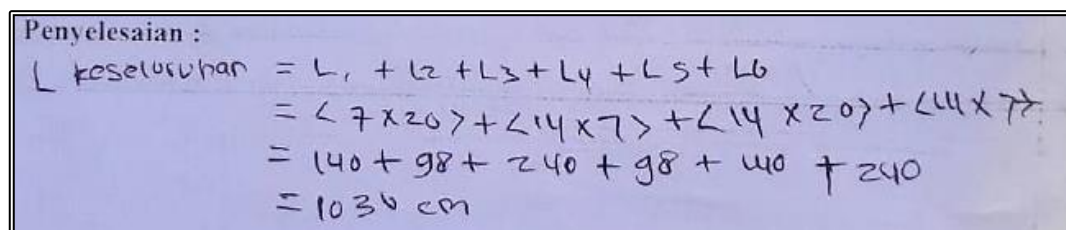 Penyelesaian :
L keseluruhan = L1 + L2 + L3 + L4 + L5 + L6
= < 7 x 20 > + < 14 x 7 > + < 14 x 20 > + < 14 x 7 >
= 140 + 98 + 240 + 98 + 140 + 240
= 1036 cm